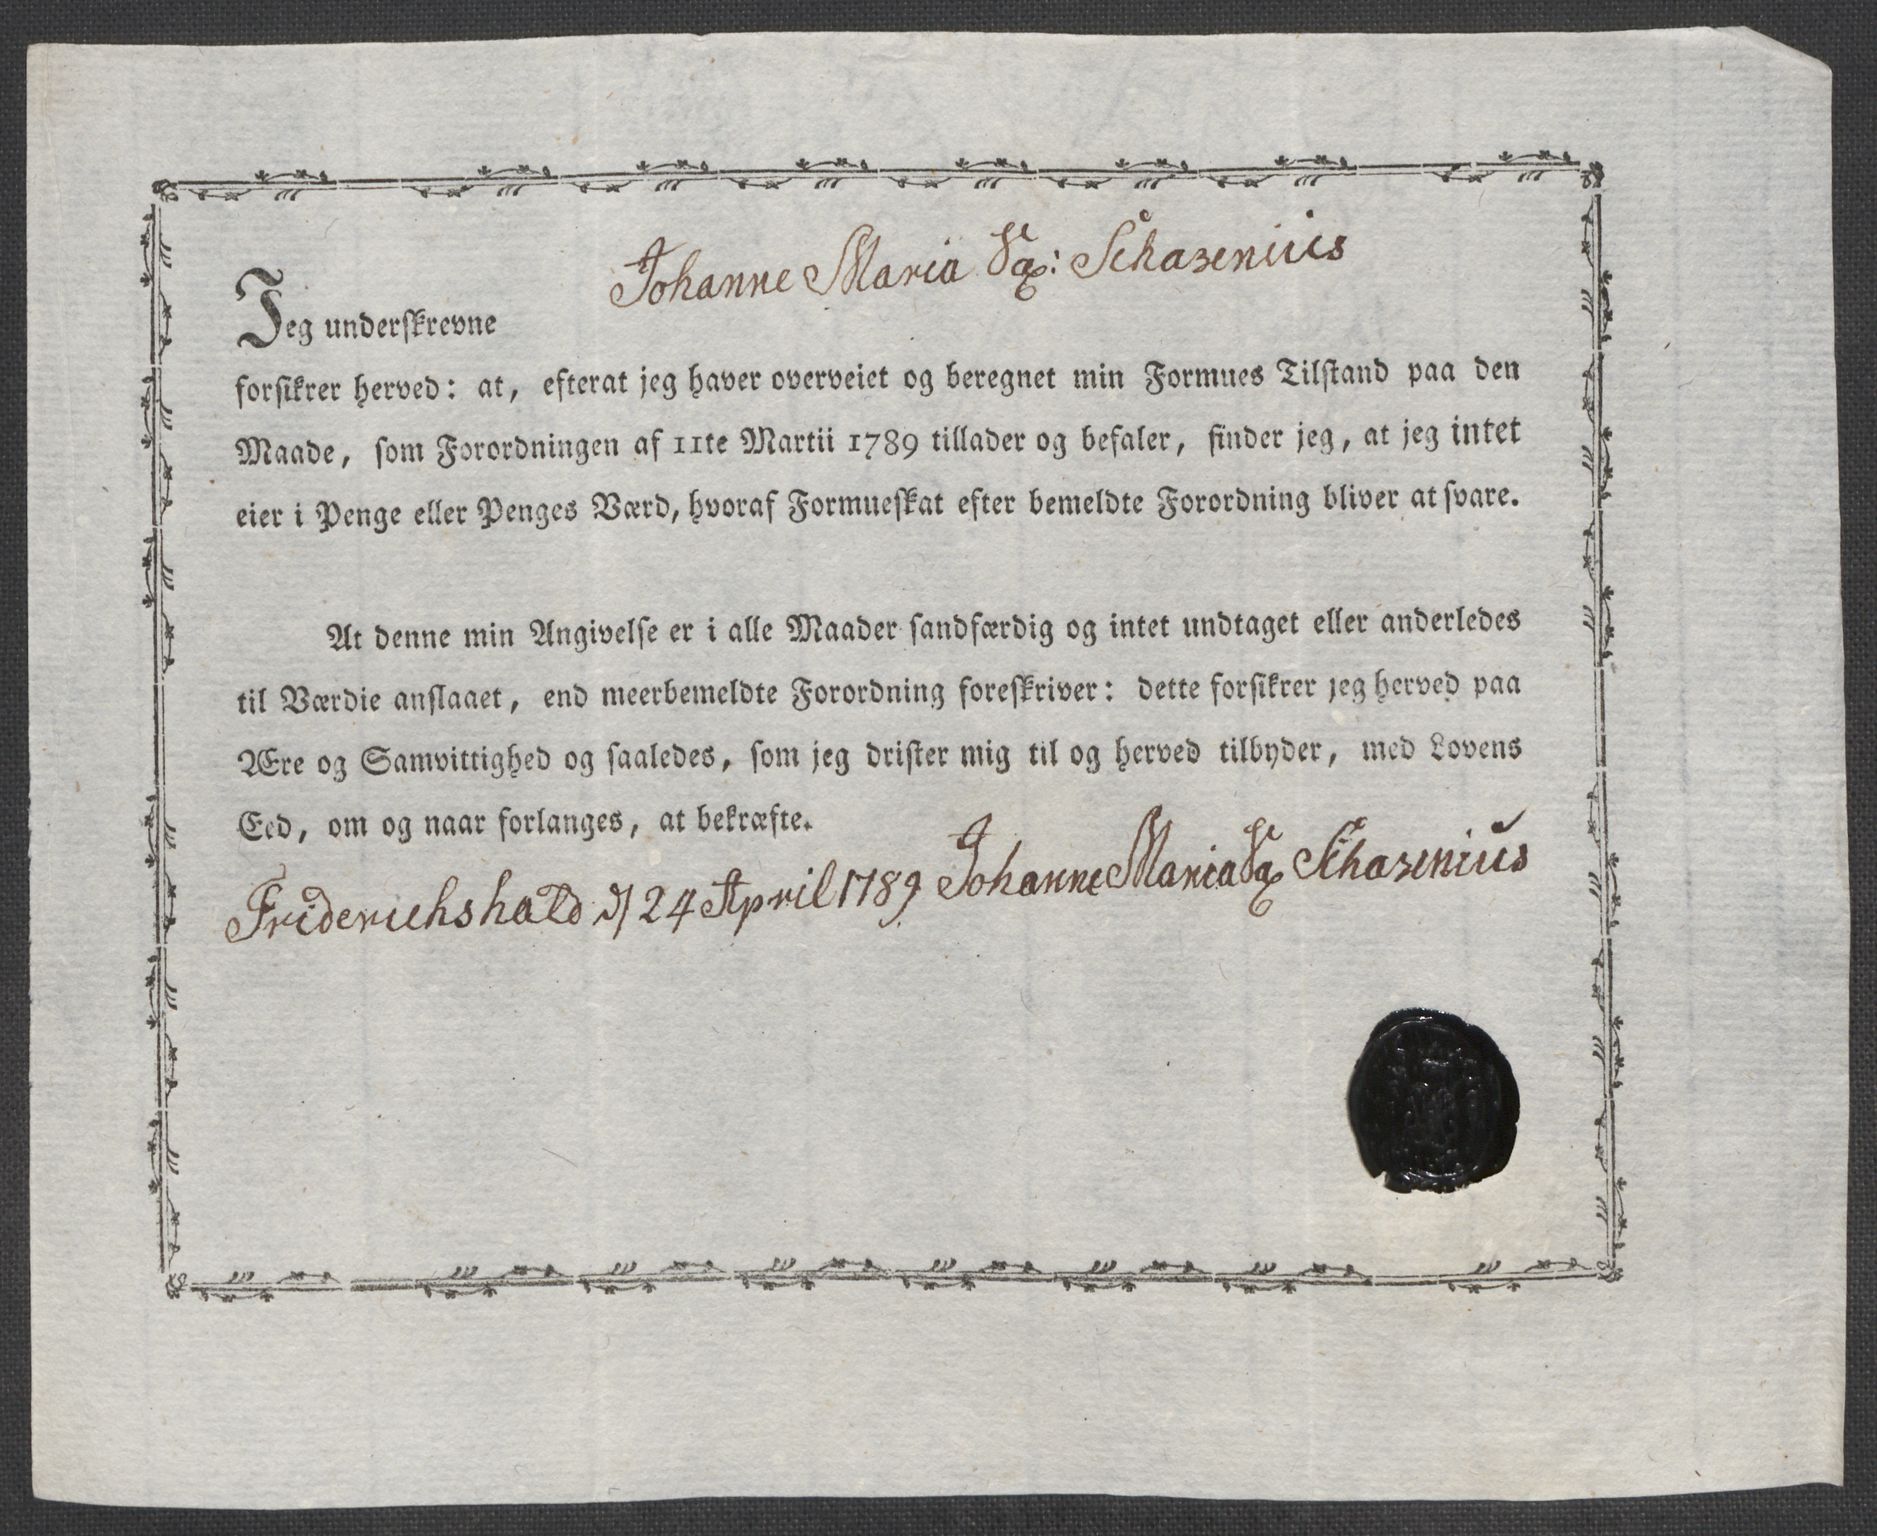 Johanne Maria Sa: Schasenius
Jeg underskrevne
forsikrer herved: at, efterat jeg haver overveiet og beregnet min Formues Tilstand paa den
Maade, som Forordningen af 11te Martii 1789 tillader og befaler, finder jeg, at jeg intet
eier i Penge eller Penges Værd, hvoraf Formueskat efter bemeldte Forordning bliver at svare.
At denne min Angivelse er i alle Maader sandfærdig og intet undtaget eller anderledes
til Værdie anslaaet, end meerbemeldte Forordning foreskriver: dette forsikrer jeg herved paa
Ære og Samvittighed og saaledes, som jeg drister mig til og herved tilbyder, med Lovens
Eed, om og naar forlanges, at bekræfte.
Friderichshald d 24 April 1789 Johanne Maria Sa Schasenius